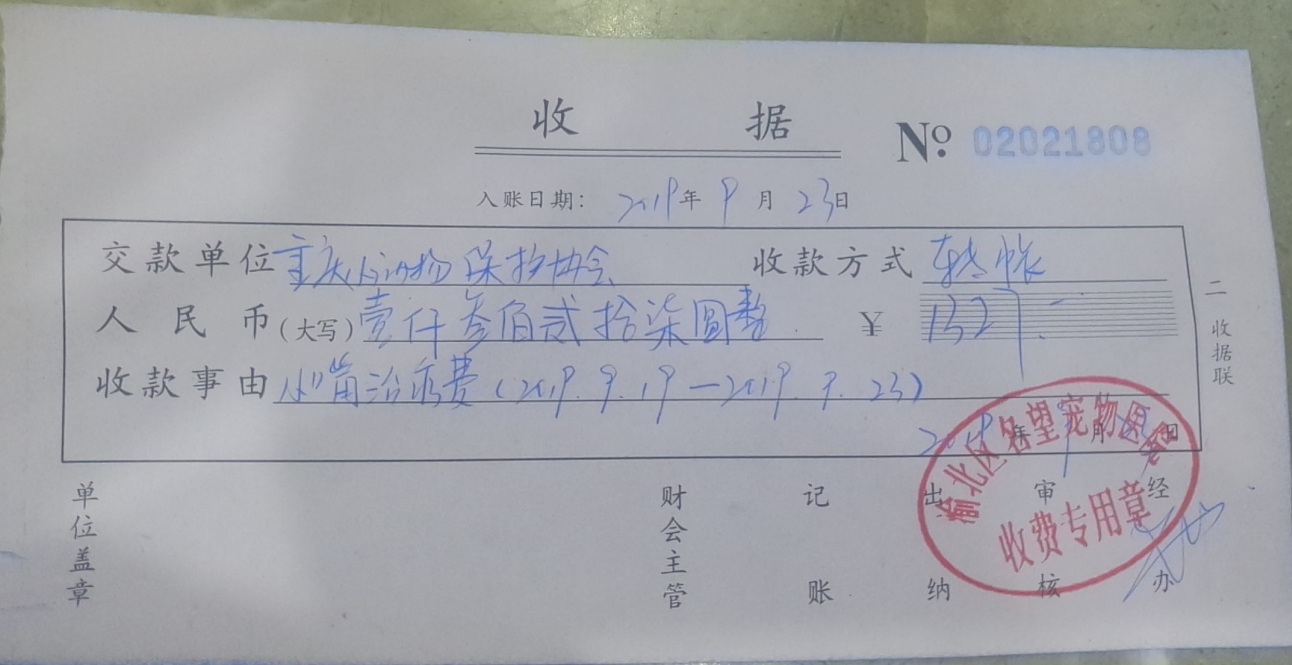 收 据
No 02021808
入账日期: 2019年9月23日
交款单位 重庆小动物保护协会 收款方式 转帐
人民币(大写) 壹仟叁佰贰拾柒圆整 ¥ 1327.-
收款事由 治疗费(2019.9.19-2019.9.23)
2019年9月23日
二 收据联
渝北区名望宠物医
收费专用章
单位盖章 财会主管 记账 出纳 审核 经办